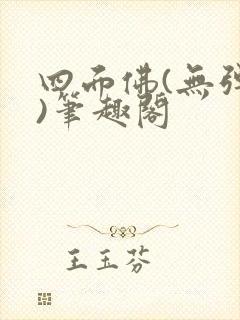 四面佛(無弹
)筆趣閣
王玉芬